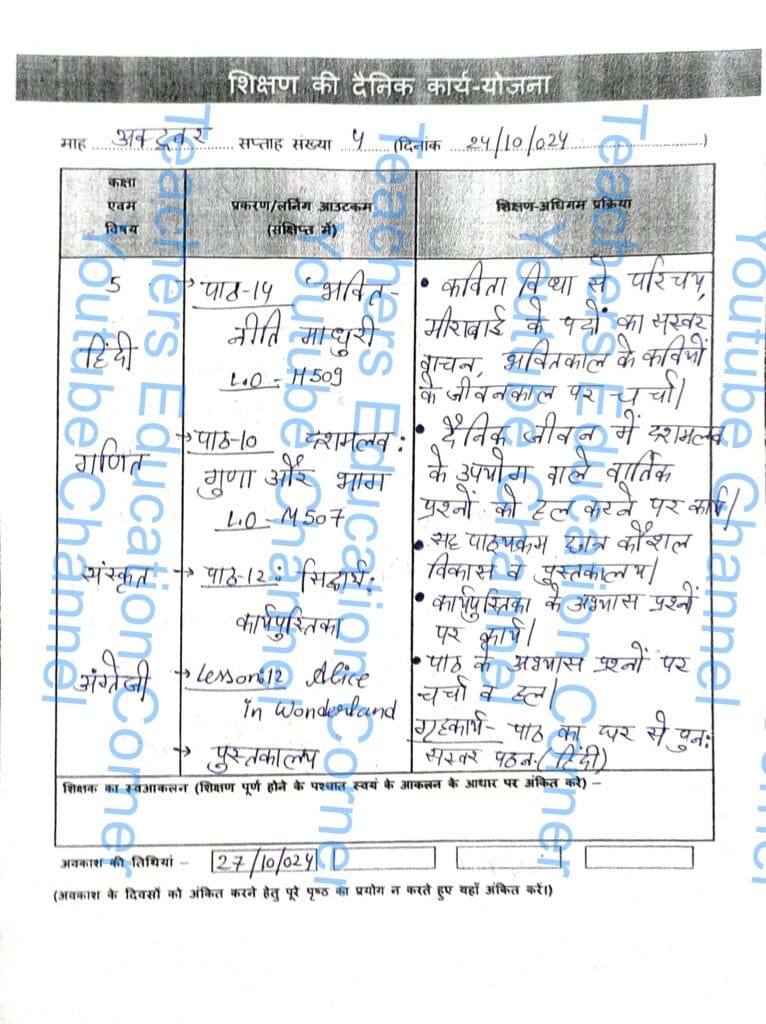 शिक्षण की दैनिक कार्य-योजना
माह अक्टूबर सप्ताह संख्या 4 (दिनाँक 24/10/024)
कक्षा एवम विषय
प्रकरण/लर्निंग आउटकम (संक्षिप्त में)
शिक्षण-अधिगम प्रक्रिया
5
हिंदी
→ पाठ-14 'भक्ति-
नीति माधुरी
L.O - H509
• कविता विधा से परिचय,
मीराबाई के पदों का सस्वर
वाचन, भक्तिकाल के कवियों
के जीवनकाल पर चर्चा।
गणित
→ पाठ-10 दशमलव:
गुणा और भाग
L.O - M507
• दैनिक जीवन में दशमलव
के उपयोग वाले वार्तिक
प्रश्नों को हल करने पर कार्य।
• सह पाठ्यक्रम छात्र कौशल
विकास व पुस्तकालय।
संस्कृत
→ पाठ-12: सिद्धार्थ:
कार्यपुस्तिका
• कार्यपुस्तिका के अभ्यास प्रश्नों
पर कार्य।
अंग्रेजी
→ Lesson:12 Alice
in Wonderland
• पाठ के अभ्यास प्रश्नों पर
चर्चा व हल।
→ पुस्तकालय
गृहकार्य- पाठ का घर से पुन:
सस्वर पठन। (हिंदी)
शिक्षक का स्वआकलन (शिक्षण पूर्ण होने के पश्चात स्वयं के आकलन के आधार पर अंकित करे) –
अवकाश की तिथियां – 27/10/024
(अवकाश के दिवसों को अंकित करने हेतु पूरे पृष्ठ का प्रयोग न करते हुए यहाँ अंकित करें।)
Teachers Education Corner
Youtube Channel
Teachers Education Corner
Youtube Channel
Teachers Education Corner
Youtube Channel